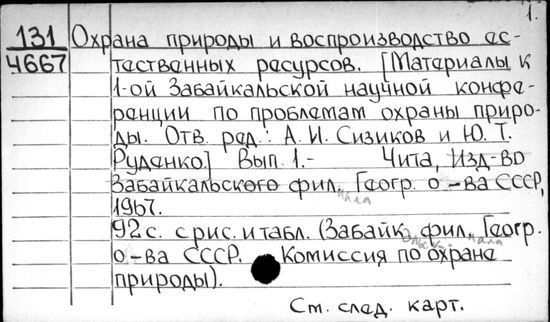 1.
131 Охрана природы и воспроизводство ес-
4667 тественных ресурсов. [Материалы к
1-ой Забайкальской научной конфе-
ренции по проблемам охраны приро-
ды. Отв. ред.: А. И. Сизиков и Ю. Т.
Руденко] Вып. 1.- Чита, Изд-во
Забайкальского фил. Геогр. о-ва СССР,
иала
1967.
92 с. с рис. и табл. (Забайк. фил. Геогр.
альск. иала
о-ва СССР. Комиссия по охране
природы).
См. след. карт.